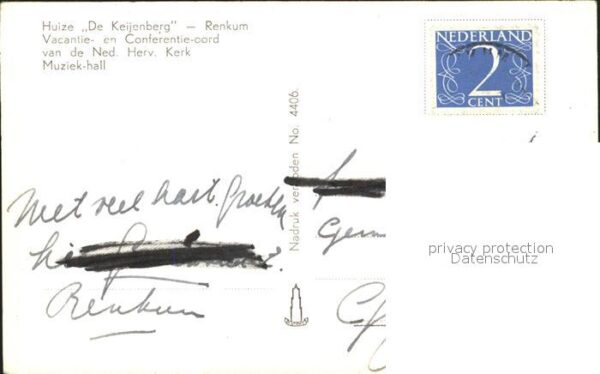 Huize „De Keijenberg" — Renkum
Vacantie- en Conferentie-oord
van de Ned. Herv. Kerk
Muziek-hall
NEDERLAND
2
CENT
Nadruk verboden No. 4406.
Met veel hart. Groeten
Renkum
Gem
privacy protection
Datenschutz